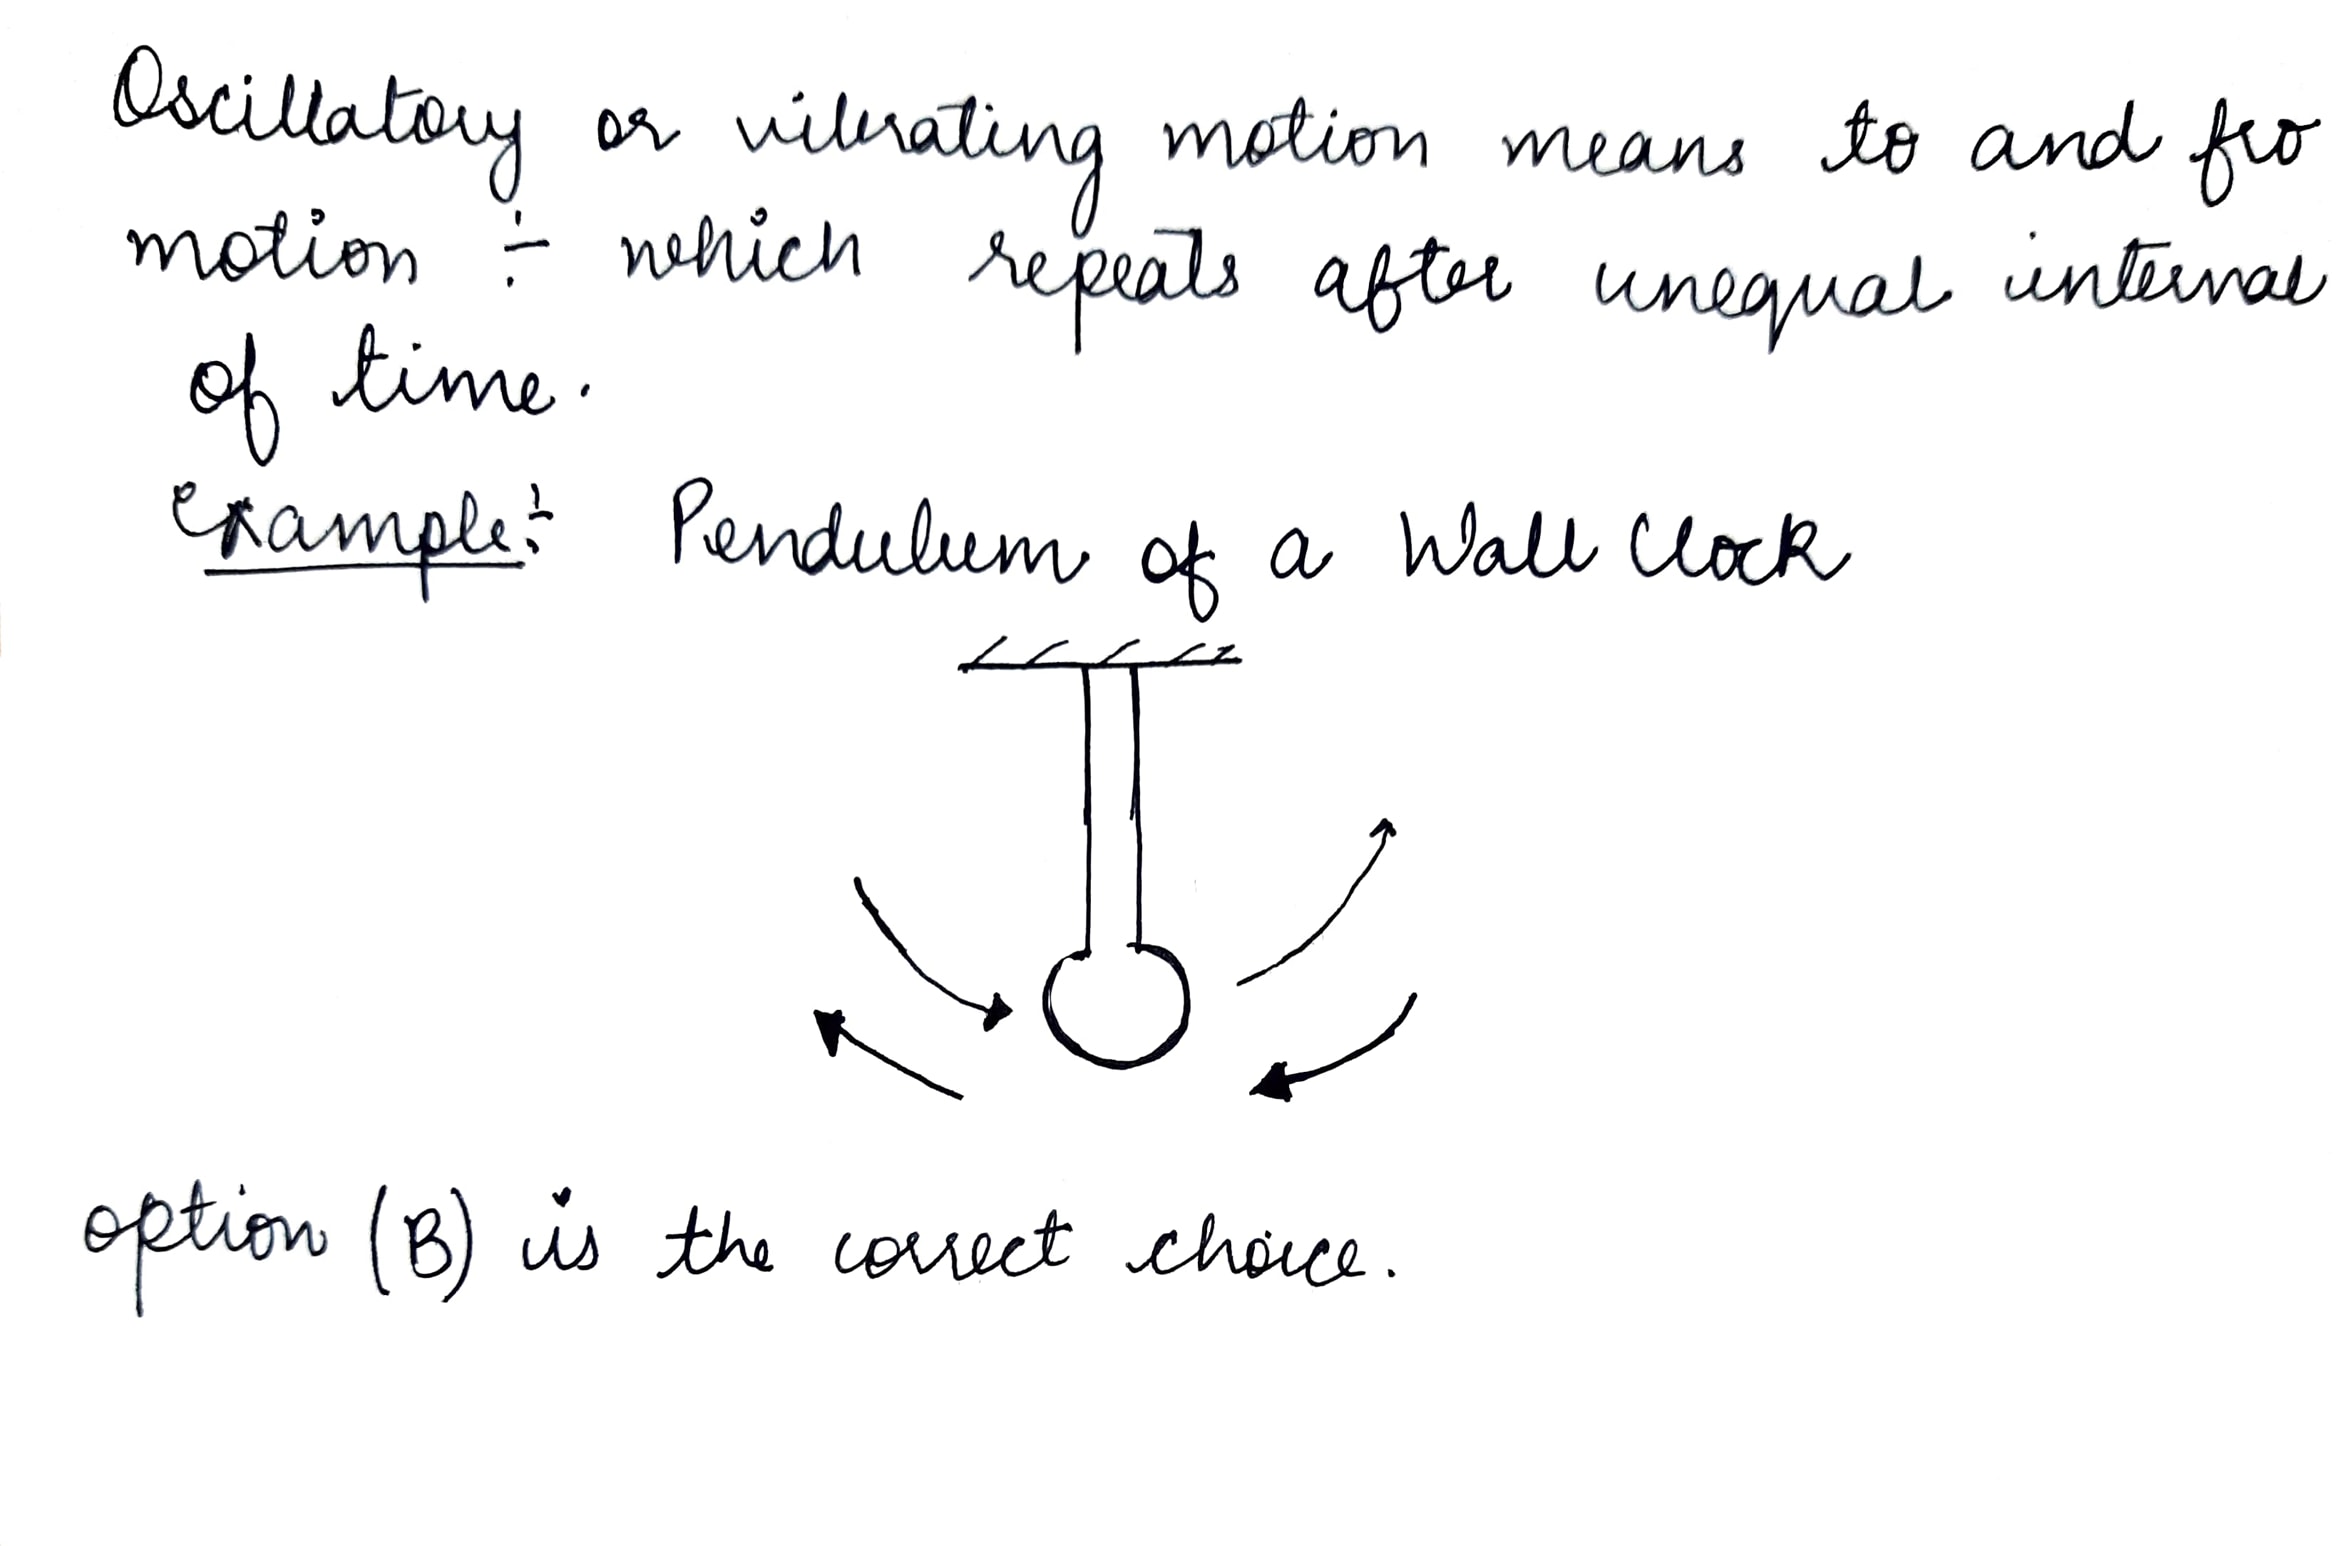 Oscillatory or vibrating motion means to and fro
motion ÷ which repeats after unequal interval
of time.
Example÷ Pendulum of a Wall Clock
option (B) is the correct choice.